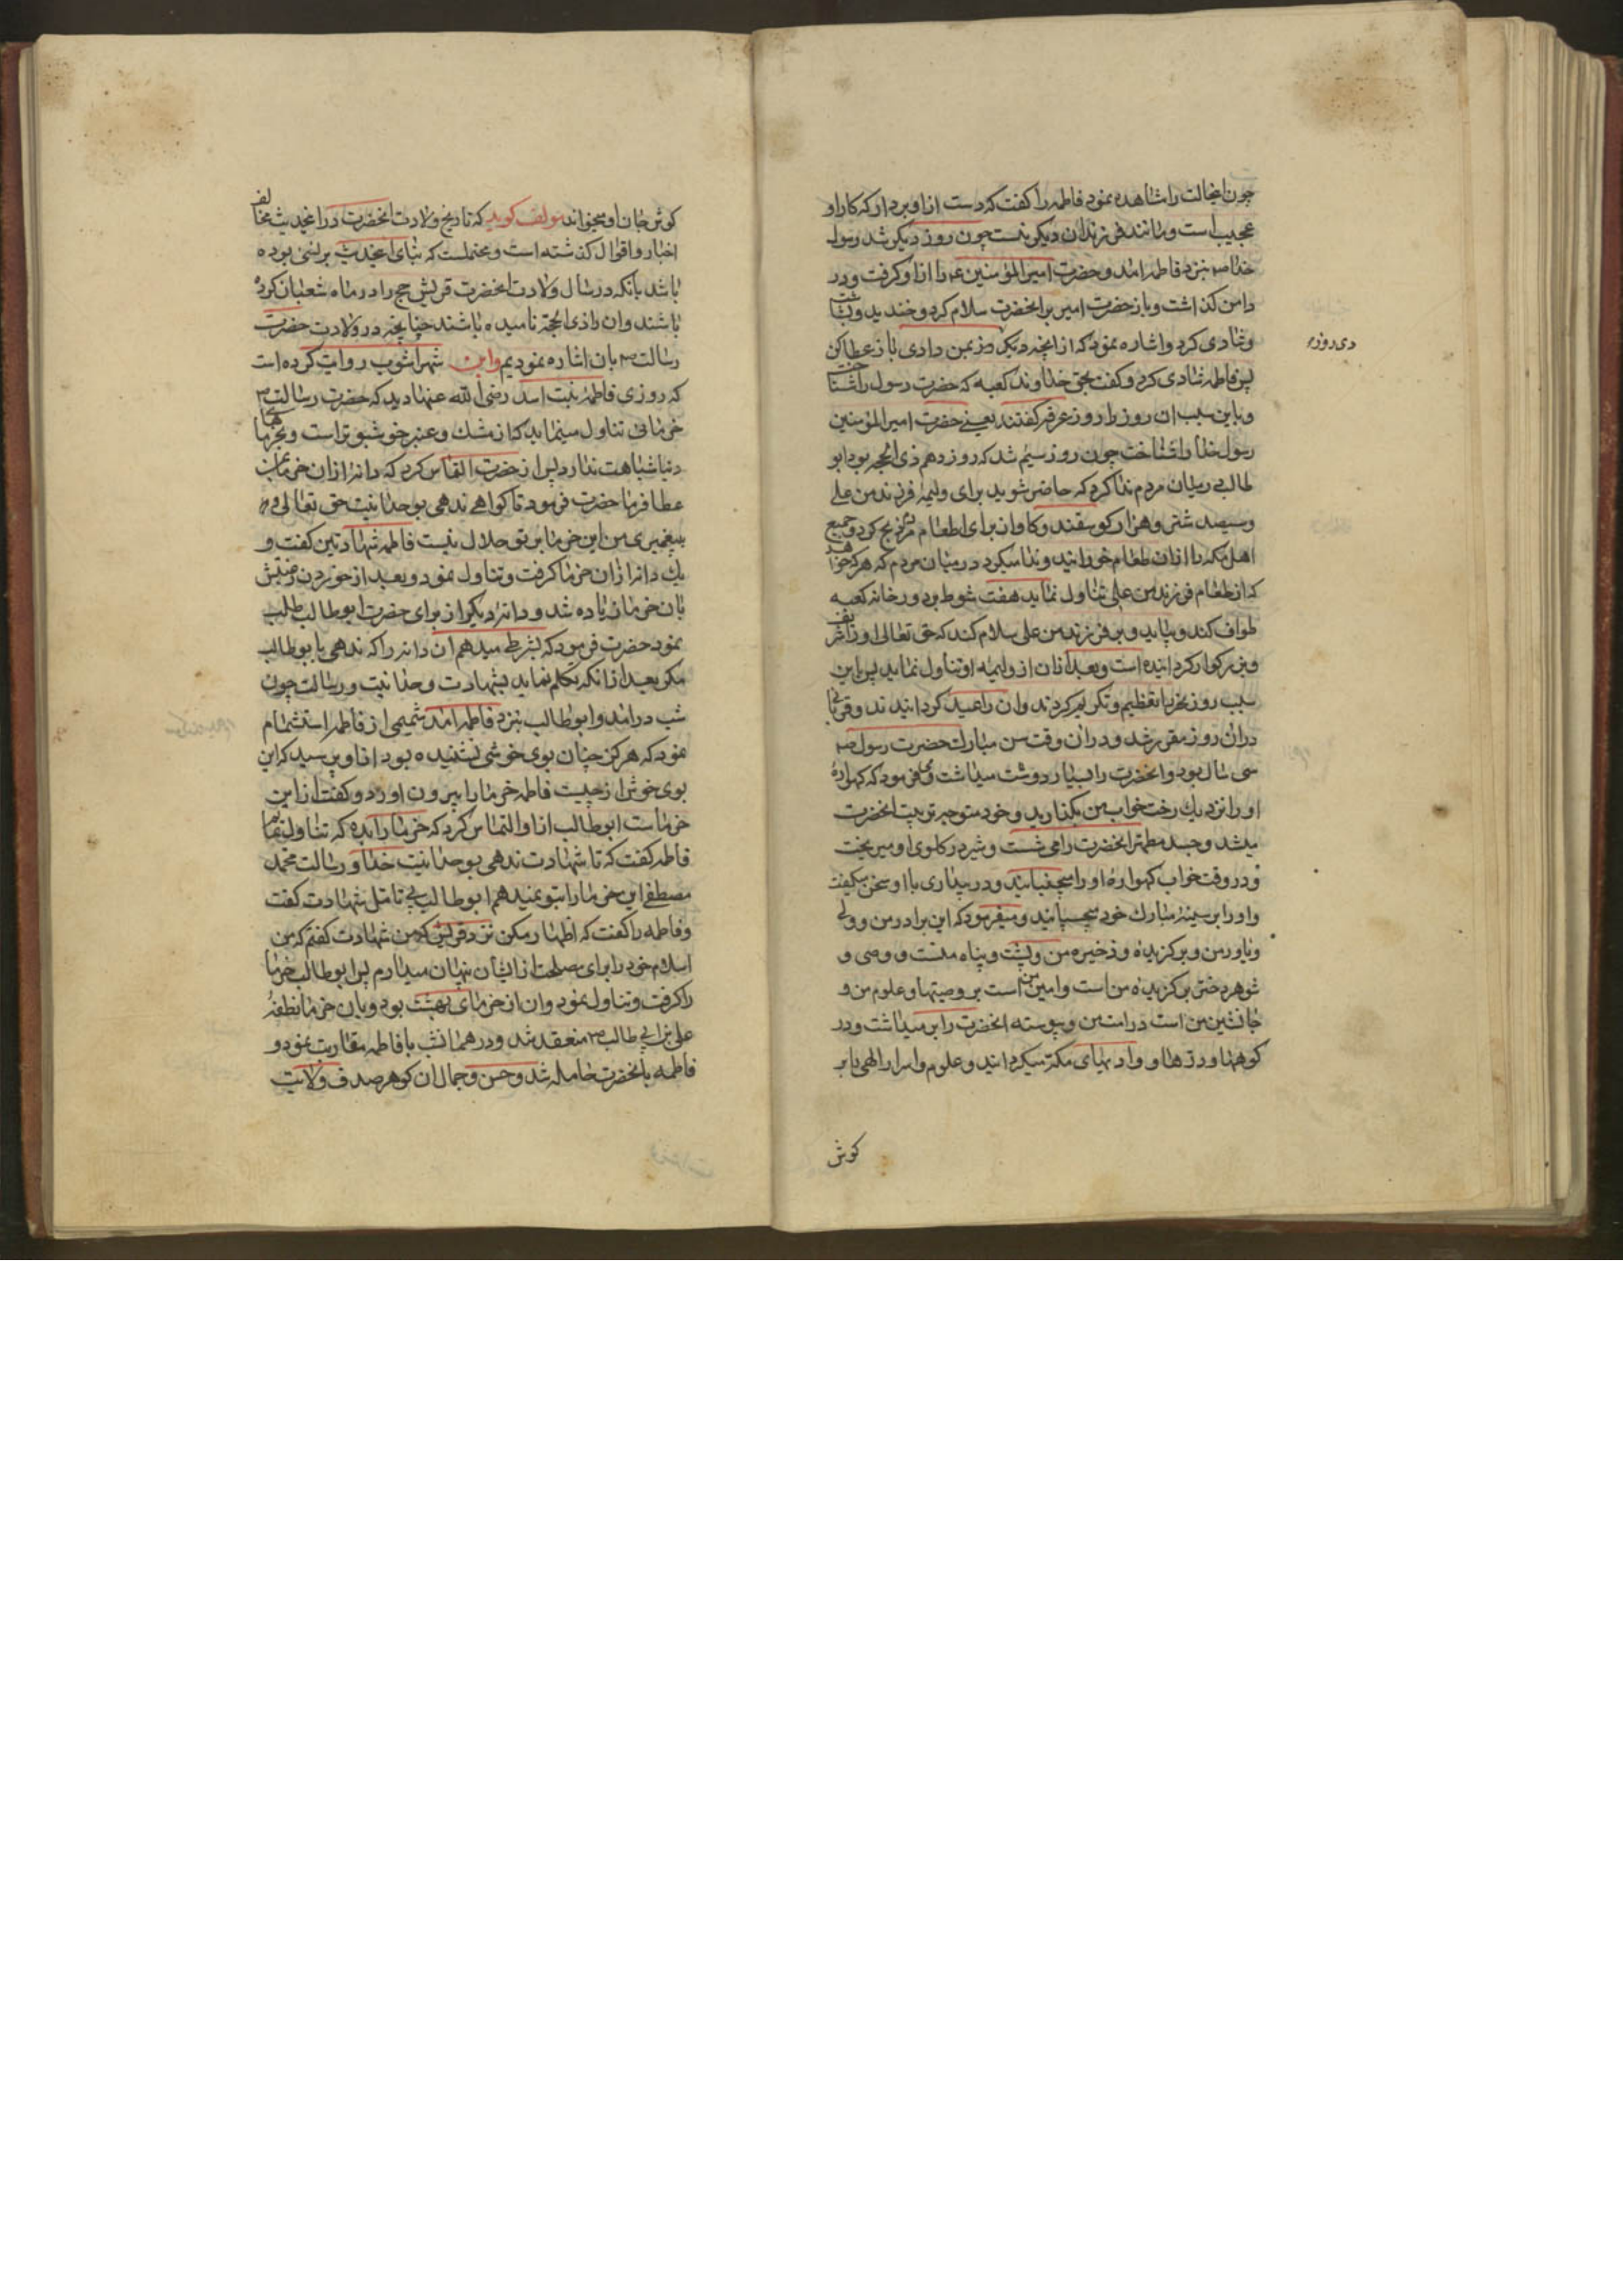 چون اینحالت را مشاهده نمود فاطمه را کفت که دست از او بردار که کار او
عجیب است و مانند فرزندان دیکر نیست چون روز دیکر شد رسول
خدا ص بنزد فاطمه امد و حضرت امیر المؤمنین ع را از او کرفت و در
دامن کذاشت و باز حضرت امیر بر انحضرت سلام کرد و خندید و بشاشت
و شادی کرد و اشاره نمود که از انچه دیکر روز بمن دادی باز عطا کن
دی روزه
پس فاطمه شادی کرد و کفت بحق خداوند کعبه که حضرت رسول را شناخت
و باین سبب ان روز را روز عرفه کفتند یعنی حضرت امیر المؤمنین
رسول خدا را شناخت چون روز سیم شد که روز دهم ذی الحجه بود ابو
طالب در میان مردم ندا کرد که حاضر شوید برای ولیمه فرزند من علی
و سیصد شتر و هزار کوسفند و کاو ان برای اطعام مردم ذبح کرد و جمیع
اهل مکه را ازان طعام خورانید و ندا میکرد در میان مردم که هر که خواهد
که از طعام فرزند من علی تناول نماید هفت شوط بدور خانه کعبه
طواف کند و بیاید و بر فرزند من علی سلام کند که حق تعالی او را شریف
و بزرکوار کردانیده است و بعد ازان از ولیمه او تناول نماید پس باین
سبب روز نحر را تعظیم و تکریم کردند و ان را عید کردانیدند و قربانی
دران روز مقرر شد و دران وقت سن مبارک حضرت رسول ص
سی سال بود و انحضرت را بسیار دوست میداشت و می فرمود که کهواره
او را نزدیک رخت خواب من بکذارید و خود متوجه تربیت انحضرت
میشد و جسد مطهر انحضرت را می شست و شیر در کلوی او میریخت
و در وقت خواب کهواره او را میجنبانید و در بیداری با او سخن میکفت
و او را بر سینه مبارک خود میچسپانید و میفرمود که این برادر من و ولی
و یاور من و برکزیده و ذخیره من و پشت و پناه منست و وصی و
شوهر دختر برکزیده من است و امین من است بر وصیتها و علوم من و
جانشین من است در امت من و پیوسته انحضرت را بر میداشت و در
کوهها و درّها و وادیهای مکه میکردانید و علوم و اسرار الهی را بر
کوش
کوش جان او میخواند مولف کوید که تاریخ ولادت انحضرت در اینحدیث مخالف
اخبار و اقوال کذشته است و محتملست که بنای اینحدیث بر نسئ بوده
باشد بانکه در سال ولادت انحضرت قریش حج را در ماه شعبان کرده
باشند و ان را ذی الحجه نامیده باشند چنانچه در ولادت حضرت
رسالت ص بان اشاره نمودیم و ابن شهراشوب روایت کرده است
که روزی فاطمه بنت اسد رضی الله عنها دید که حضرت رسالت ص
خرمائی تناول مینماید که از مشک و عنبر خوشبوتر است و بخرماهای
دنیا شباهت ندارد پس از حضرت التماس کرد که دانه ازان خرما بمن
عطا فرما حضرت فرمود تا کواهی ندهی بوحدانیت حق تعالی و
پیغمبری من این خرما بر تو حلال نیست فاطمه شهادتین کفت و
یک دانه ازان خرما کرفت و تناول نمود و بعد از خوردن رغبتش
بان خرما زیاده شد و دانه دیکر از برای حضرت ابو طالب طلب
نمود حضرت فرمود که بشرطی میدهم ان دانه را که ندهی بابو طالب
مکر بعد از انکه تکلم نماید بشهادت وحدانیت و رسالت چون
شب درامد و ابو طالب بنزد فاطمه امد شمیمی از فاطمه استشمام
نمود که هرکز چنان بوی خوشی نشنیده بود از او پرسید که این
بوی خوش از چیست فاطمه خرما را بیرون اورد و کفت از این
خرماست ابو طالب از او التماس کرد که خرما را بده که تناول نمایم
فاطمه کفت که تا شهادت ندهی بوحدانیت خدا و رسالت محمد
مصطفی این خرما را بتو نمیدهم ابو طالب بی تامل شهادت کفت
و فاطمه را کفت که اظهار مکن نزد قریش که من شهادت کفتم که من
اسلام خود را برای مصلحت از ایشان پنهان میدارم پس ابو طالب خرما
را کرفت و تناول نمود و ان از خرمای بهشت بود و بان خرما نطفه
علی بن ابی طالب ص منعقد شد و در همانشب با فاطمه مقاربت نمود و
فاطمه بانحضرت حامله شد و حسن و جمال ان کوهر صدف ولایت